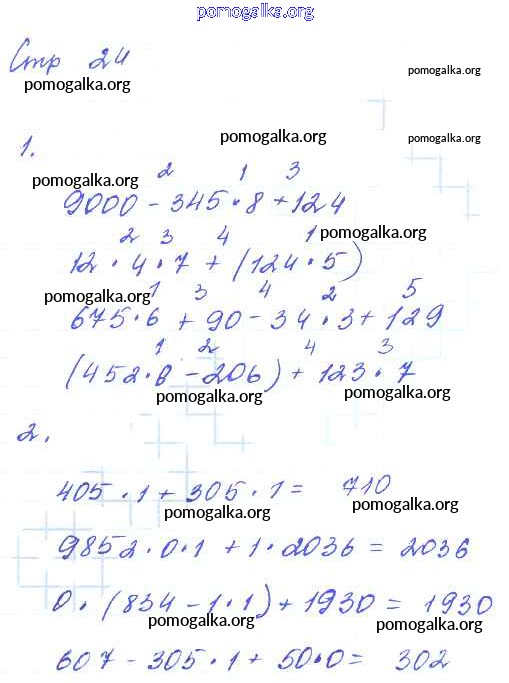 pomogalka.org
Стр 24
pomogalka.org pomogalka.org
1. pomogalka.org pomogalka.org
2 1 3
pomogalka.org
9000 - 345 · 8 + 124
2 3 4 1 pomogalka.org
12 · 4 · 7 + (124 · 5)
pomogalka.org 1 3 4 2 5
675 · 6 + 90 - 34 · 3 + 129
1 2 4 3
(452 · 8 - 206) + 123 · 7
pomogalka.org pomogalka.org
2.
405 · 1 + 305 · 1 = 710
pomogalka.org pomogalka.org
9852 · 0 · 1 + 1 · 2036 = 2036
pomogalka.org
0 · (834 - 1 · 1) + 1930 = 1930
pomogalka.org pomogalka.org
607 - 305 · 1 + 50 · 0 = 302
pomogalka.org